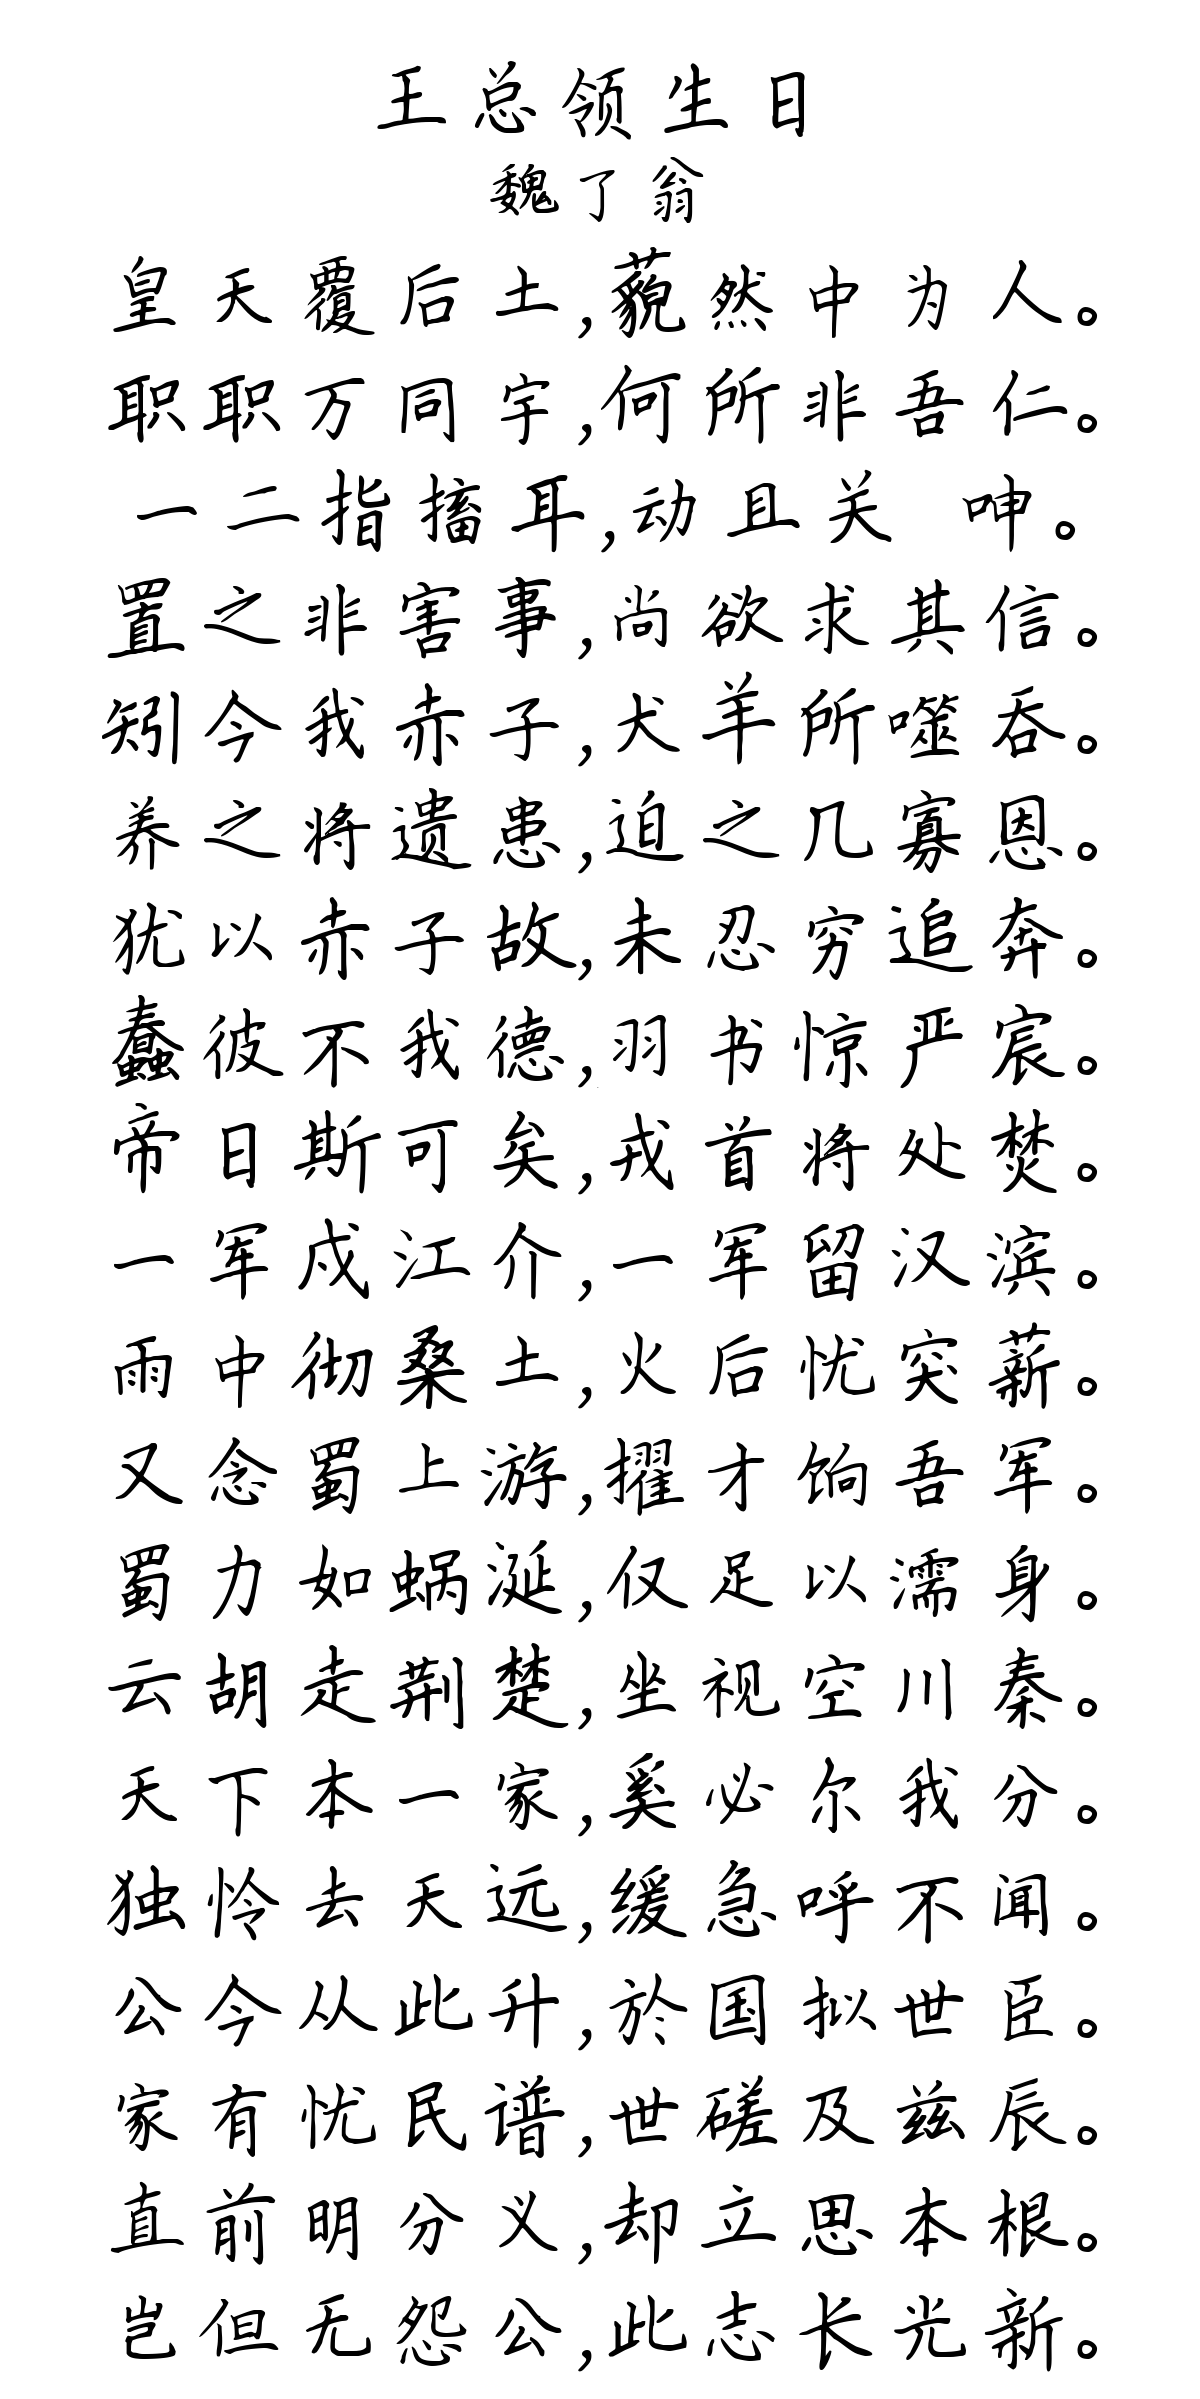 王总领生日
魏了翁
皇天覆后土,藐然中为人。
职职万同宇,何所非吾仁。
一二指搐耳,动且关 呻。
置之非害事,尚欲求其信。
矧今我赤子,犬羊所噬吞。
养之将遗患,迫之几寡恩。
犹以赤子故,未忍穷追奔。
蠢彼不我德,羽书惊严宸。
帝日斯可矣,戎首将处焚。
一军戍江介,一军留汉滨。
雨中彻桑土,火后忧突薪。
又念蜀上游,擢才饷吾军。
蜀力如蜗涎,仅足以濡身。
云胡走荆楚,坐视空川秦。
天下本一家,奚必尔我分。
独怜去天远,缓急呼不闻。
公今从此升,於国拟世臣。
家有忧民谱,世磋及兹辰。
直前明分义,却立思本根。
岂但无怨公,此志长光新。